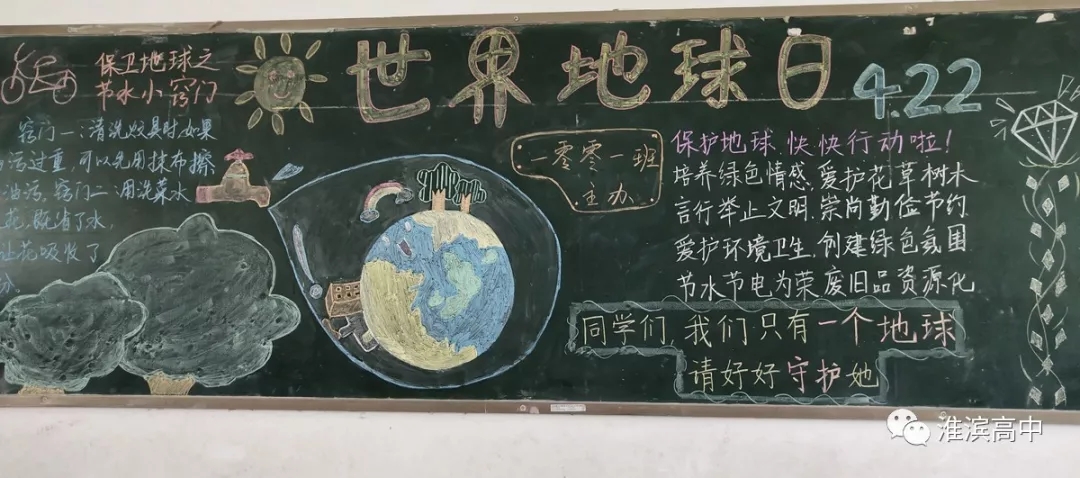 保卫地球之
节水小窍门
窍门一:清洗炊具时,如果
污过重,可以先用抹布擦
油污。窍门二:用洗菜水
花,既省了水,
让花吸收了
世界地球日
4.22
一零零一班
主办
保护地球,快快行动啦!
培养绿色情感,爱护花草树木
言行举止文明,崇尚勤俭节约
爱护环境卫生,创建绿色氛围
节水节电为荣,废旧品资源化
同学们,我们只有一个地球
请好好守护她
淮滨高中